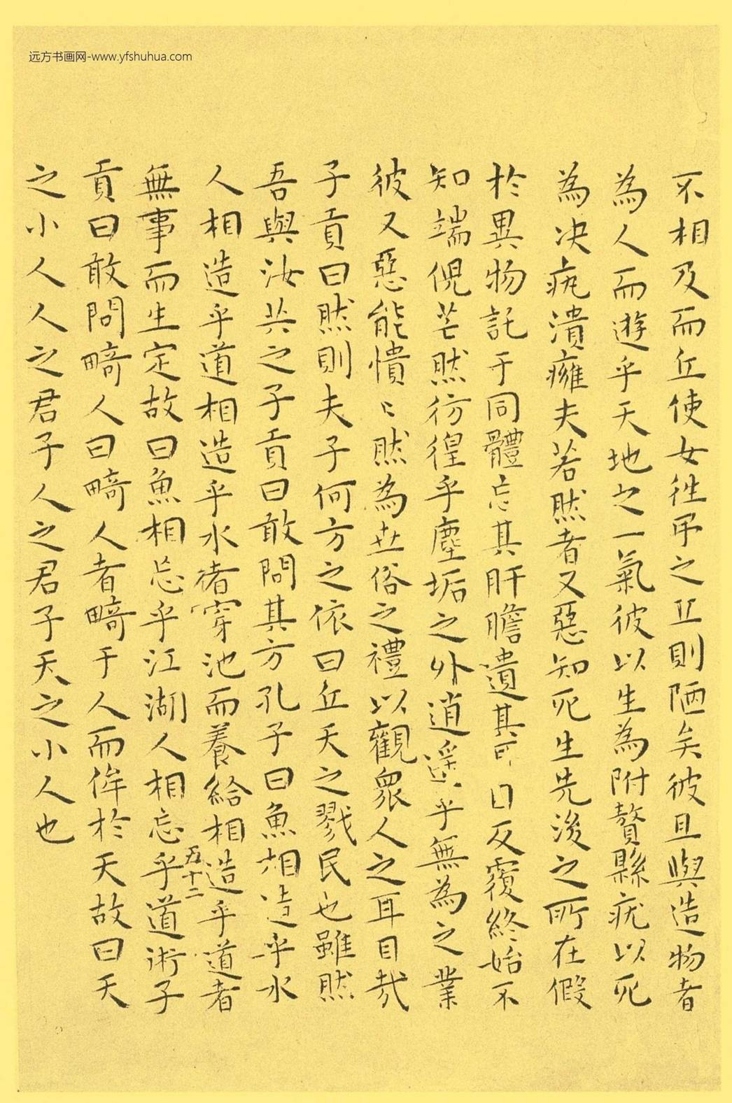 远方书画网-www.yfshuhua.com
不相及而丘使女徃弔之丘則陋矣彼且與造物者
為人而遊乎天地之一氣彼以生為附贅縣疣以死
為决疣潰癰夫若然者又惡知死生先後之所在假
於異物託于同體忘其肝膽遺其耳目反覆終始不
知端倪芒然彷徨乎塵垢之外逍遥乎無為之業
彼又惡能憒〻然為世俗之禮以觀衆人之耳目哉
子貢曰然則夫子何方之依曰丘天之戮民也雖然
吾與汝共之子貢曰敢問其方孔子曰魚相造乎水
人相造乎道相造乎水者穿池而養給相造乎道者
無事而生定故曰魚相忘乎江湖人相忘乎道術子
五十二
貢曰敢問畸人曰畸人者畸于人而侔於天故曰天
之小人人之君子人之君子天之小人也